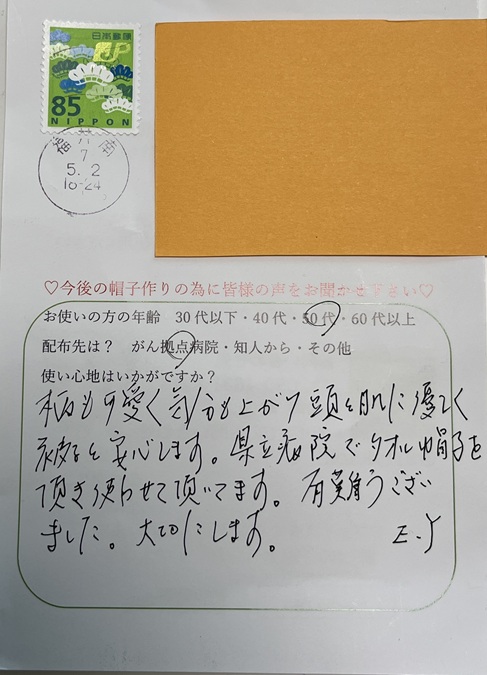 日本郵便
85
NIPPON
福井南
7
5.2
16-24
♡今後の帽子作りの為に皆様の声をお聞かせ下さい♡
お使いの方の年齢 30代以下・40代・50代・60代以上
配布先は? がん拠点病院・知人から・その他
使い心地はいかがですか?
柄も可愛く気分も上がり頭も肌に優しく
安心します。県立病院でタオル帽子を
頂き使わせて頂いてます。有難うござい
ました。大切にします。 E.Y